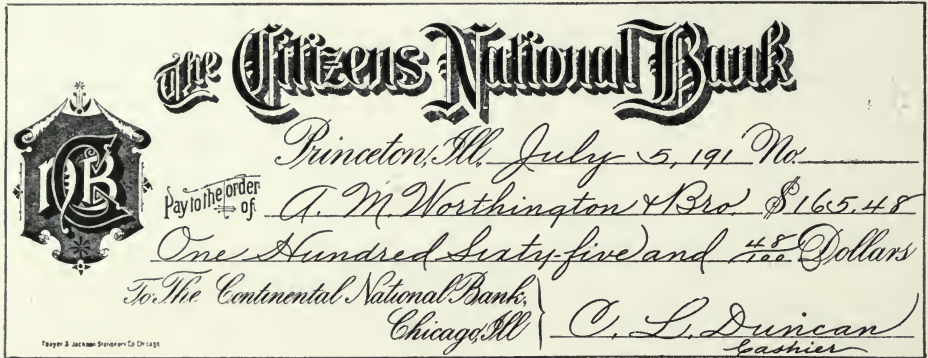 The Citizens National Bank
Princeton, Ill. July 5, 191 No.
Pay to the order of A. M. Worthington & Bro. $165.48
One Hundred Sixty-five and 48/100 Dollars
To The Continental National Bank,
Chicago, Ill
C. L. Duncan
Cashier
Thayer & Jackson Stationery Co Chicago